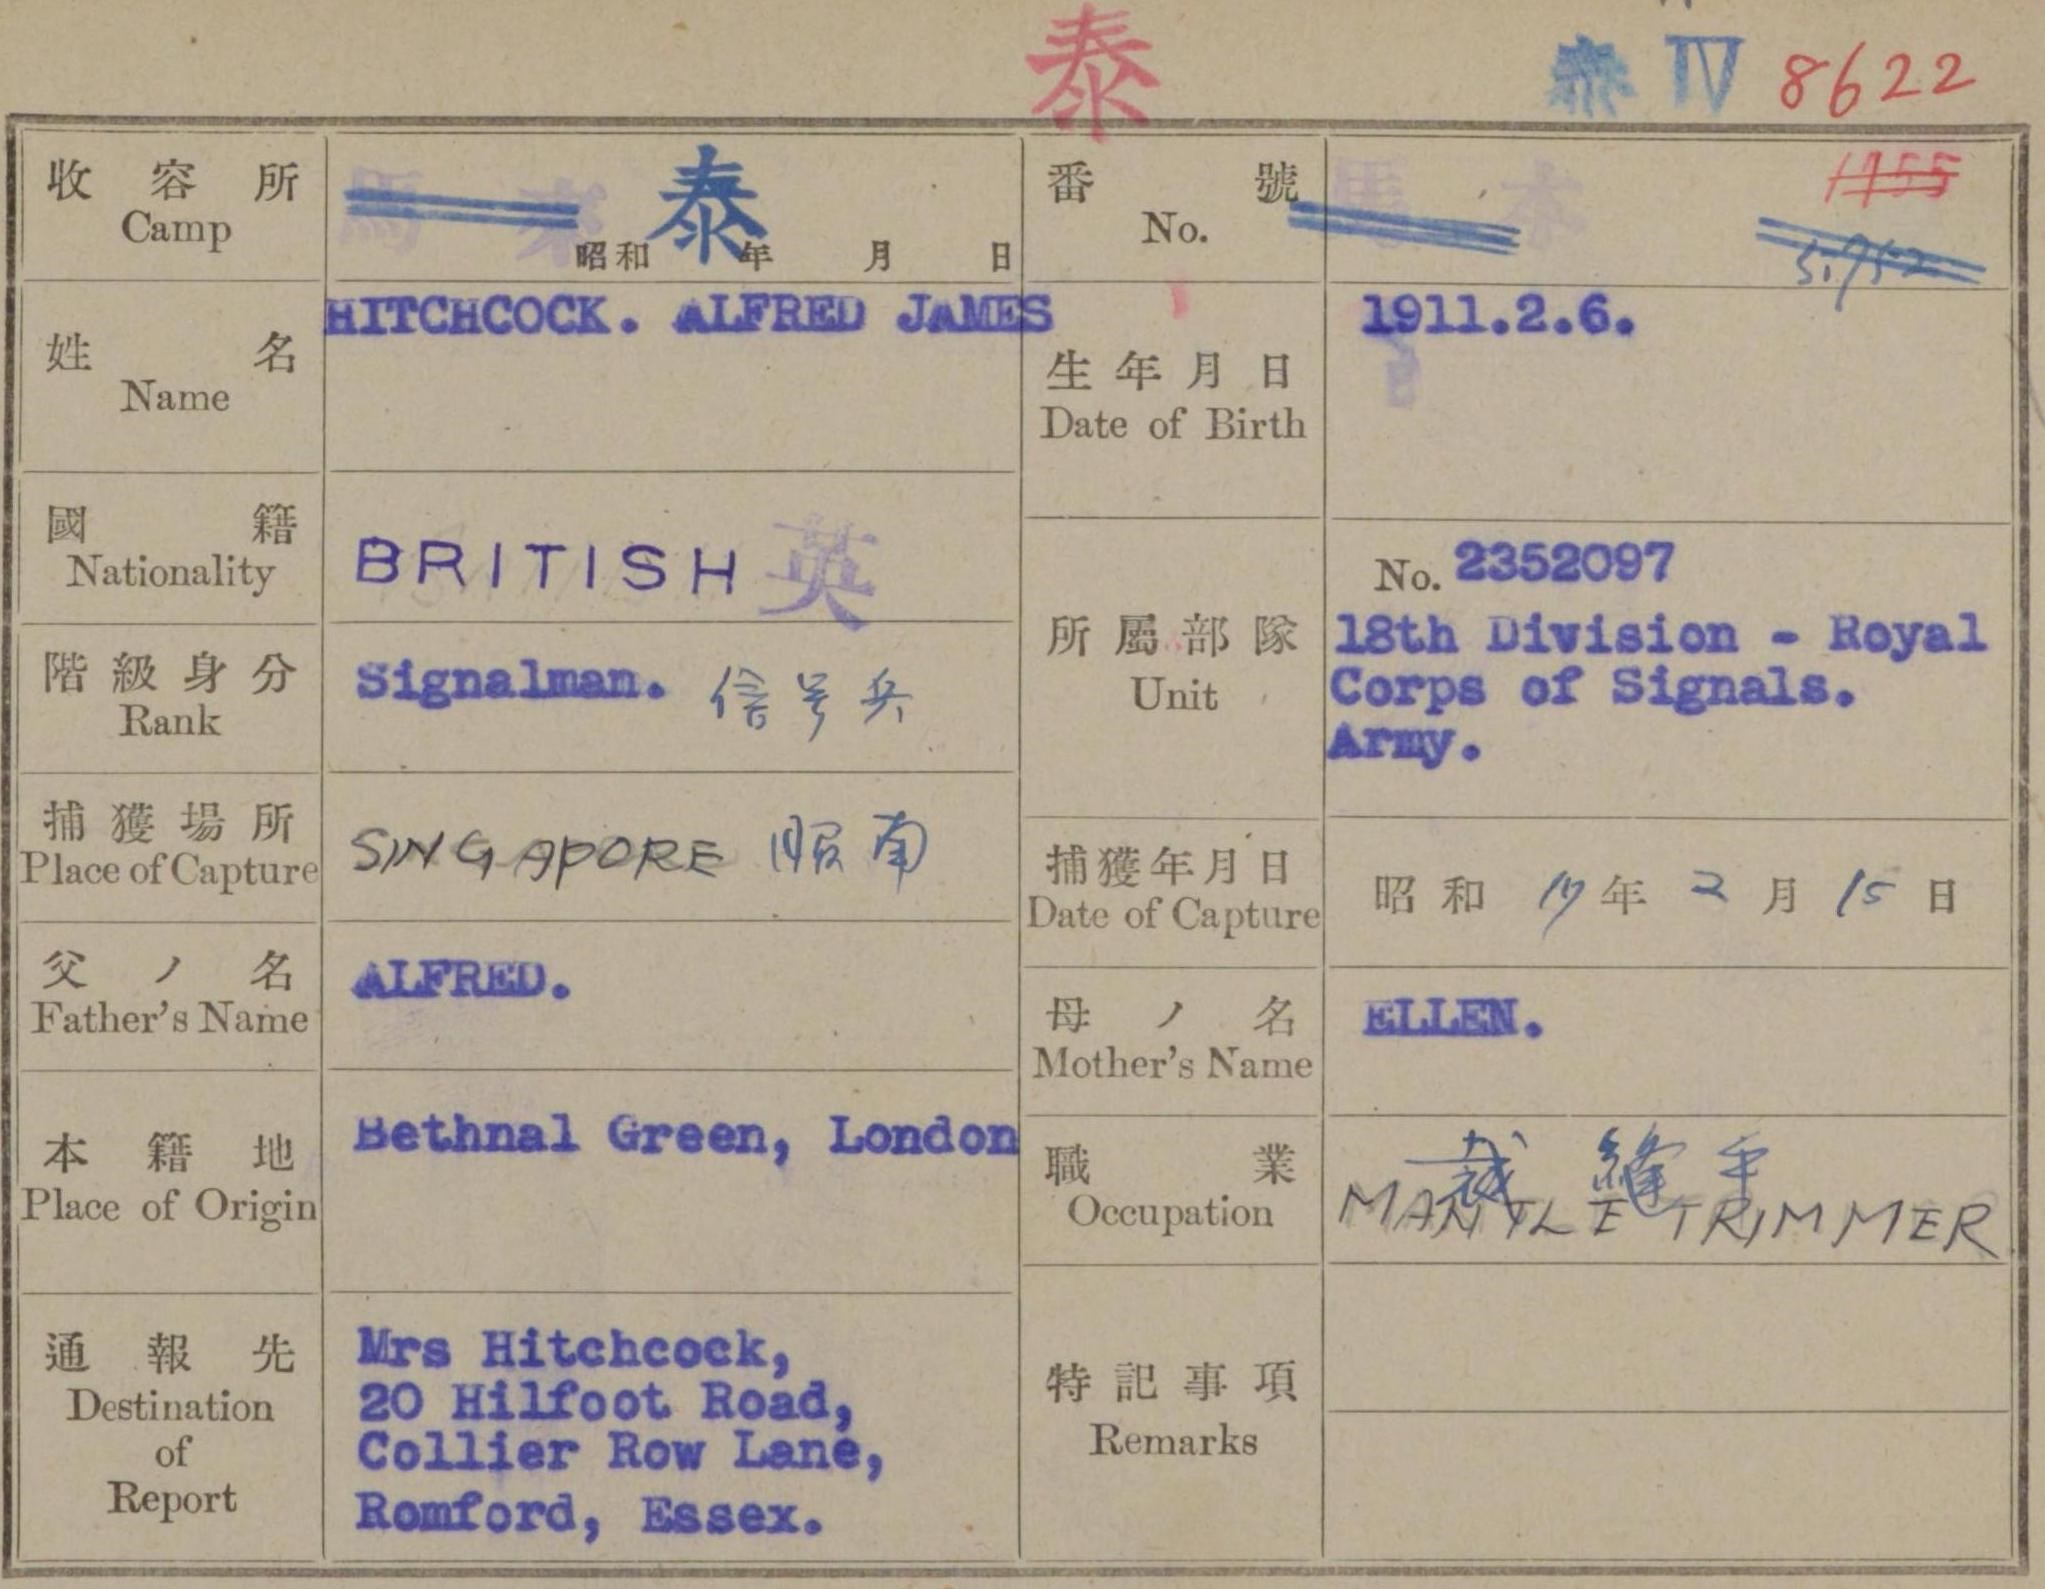 泰
泰 IV 8622
收容所
Camp
馬来 泰
昭和 年 月 日
番號
No.
馬 本
1755
姓名
Name
HITCHCOCK. ALFRED JAMES
生年月日
Date of Birth
1911.2.6.
國籍
Nationality
BRITISH 英
所屬部隊
Unit
No. 2352097
18th Division - Royal
Corps of Signals.
Army.
階級身分
Rank
Signalman. 信号兵
捕獲場所
Place of Capture
SINGAPORE 昭南
捕獲年月日
Date of Capture
昭和 17年 2月 15日
父ノ名
Father's Name
ALFRED.
母ノ名
Mother's Name
ELLEN.
本籍地
Place of Origin
Bethnal Green, London
職業
Occupation
縫手
MANTLE TRIMMER
通報先
Destination
of
Report
Mrs Hitchcock,
20 Hilfoot Road,
Collier Row Lane,
Romford, Essex.
特記事項
Remarks